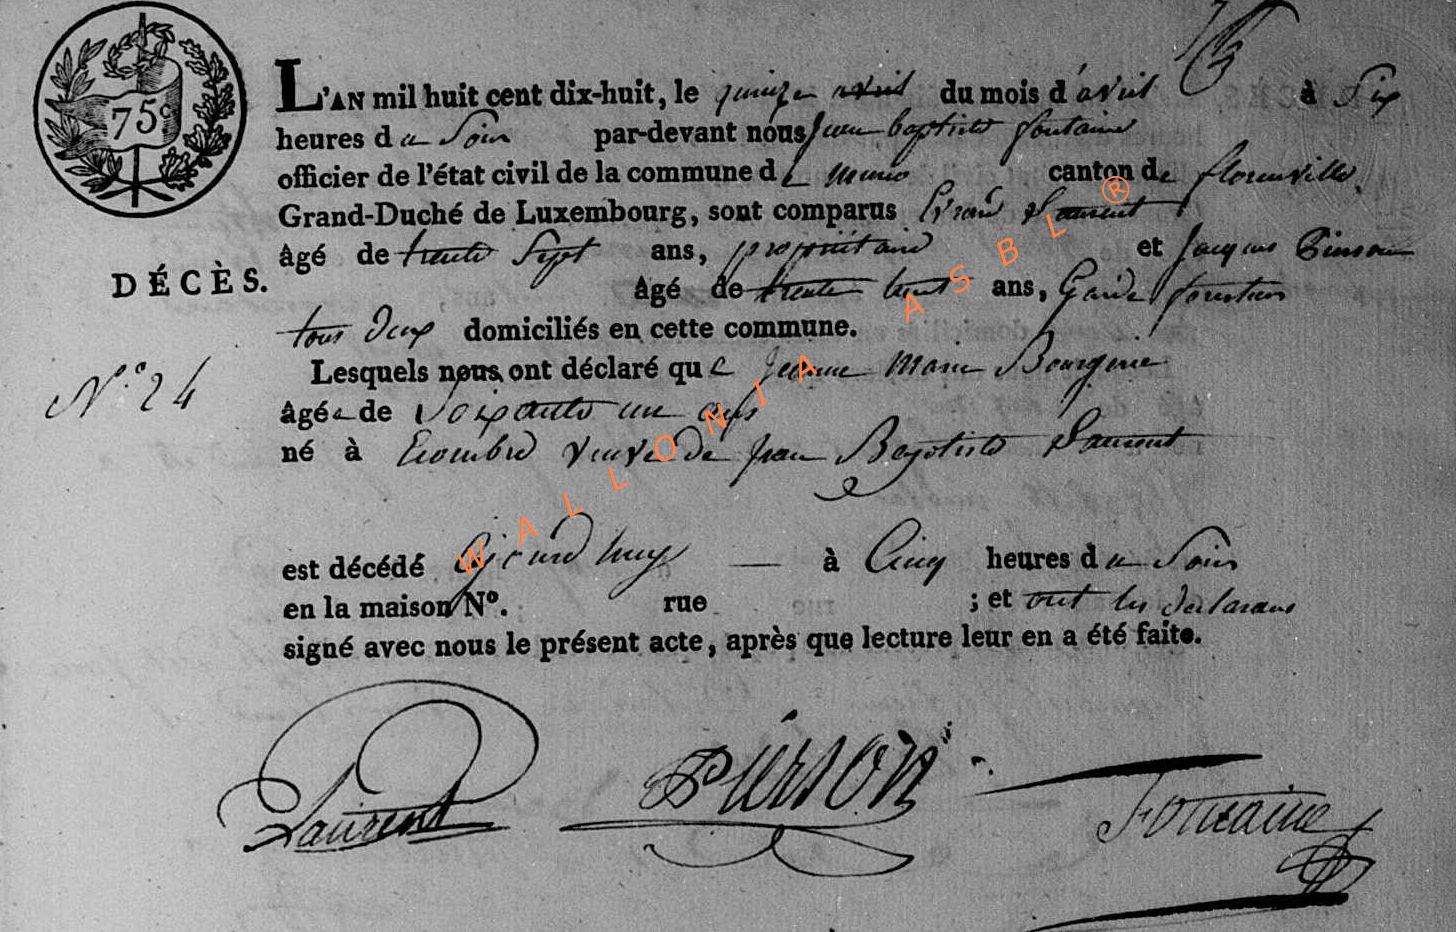 75c
L'AN mil huit cent dix-huit, le quinze avril du mois d'avril à Six
heures du Soir par-devant nous Jean baptiste fontaine
officier de l'état civil de la commune de muno canton de florenville
Grand-Duché de Luxembourg, sont comparus Evrard Laurent
âgé de trente Sept ans, propriétaire et Jacques Pierson
DÉCÈS.
âgé de trente huit ans, Garde forestier
tous deux domiciliés en cette commune.
N.° 24
Lesquels nous ont déclaré que Jeanne Marie
âgée de Soixante un ans
né à veuve de Jean Baptiste Laurent
est décédé à Cinq heures du Soir
en la maison N°. rue ; et ont les declarans
signé avec nous le présent acte, après que lecture leur en a été faite.
Laurent Pierson Fontaine
WALLONIA ASBL ®